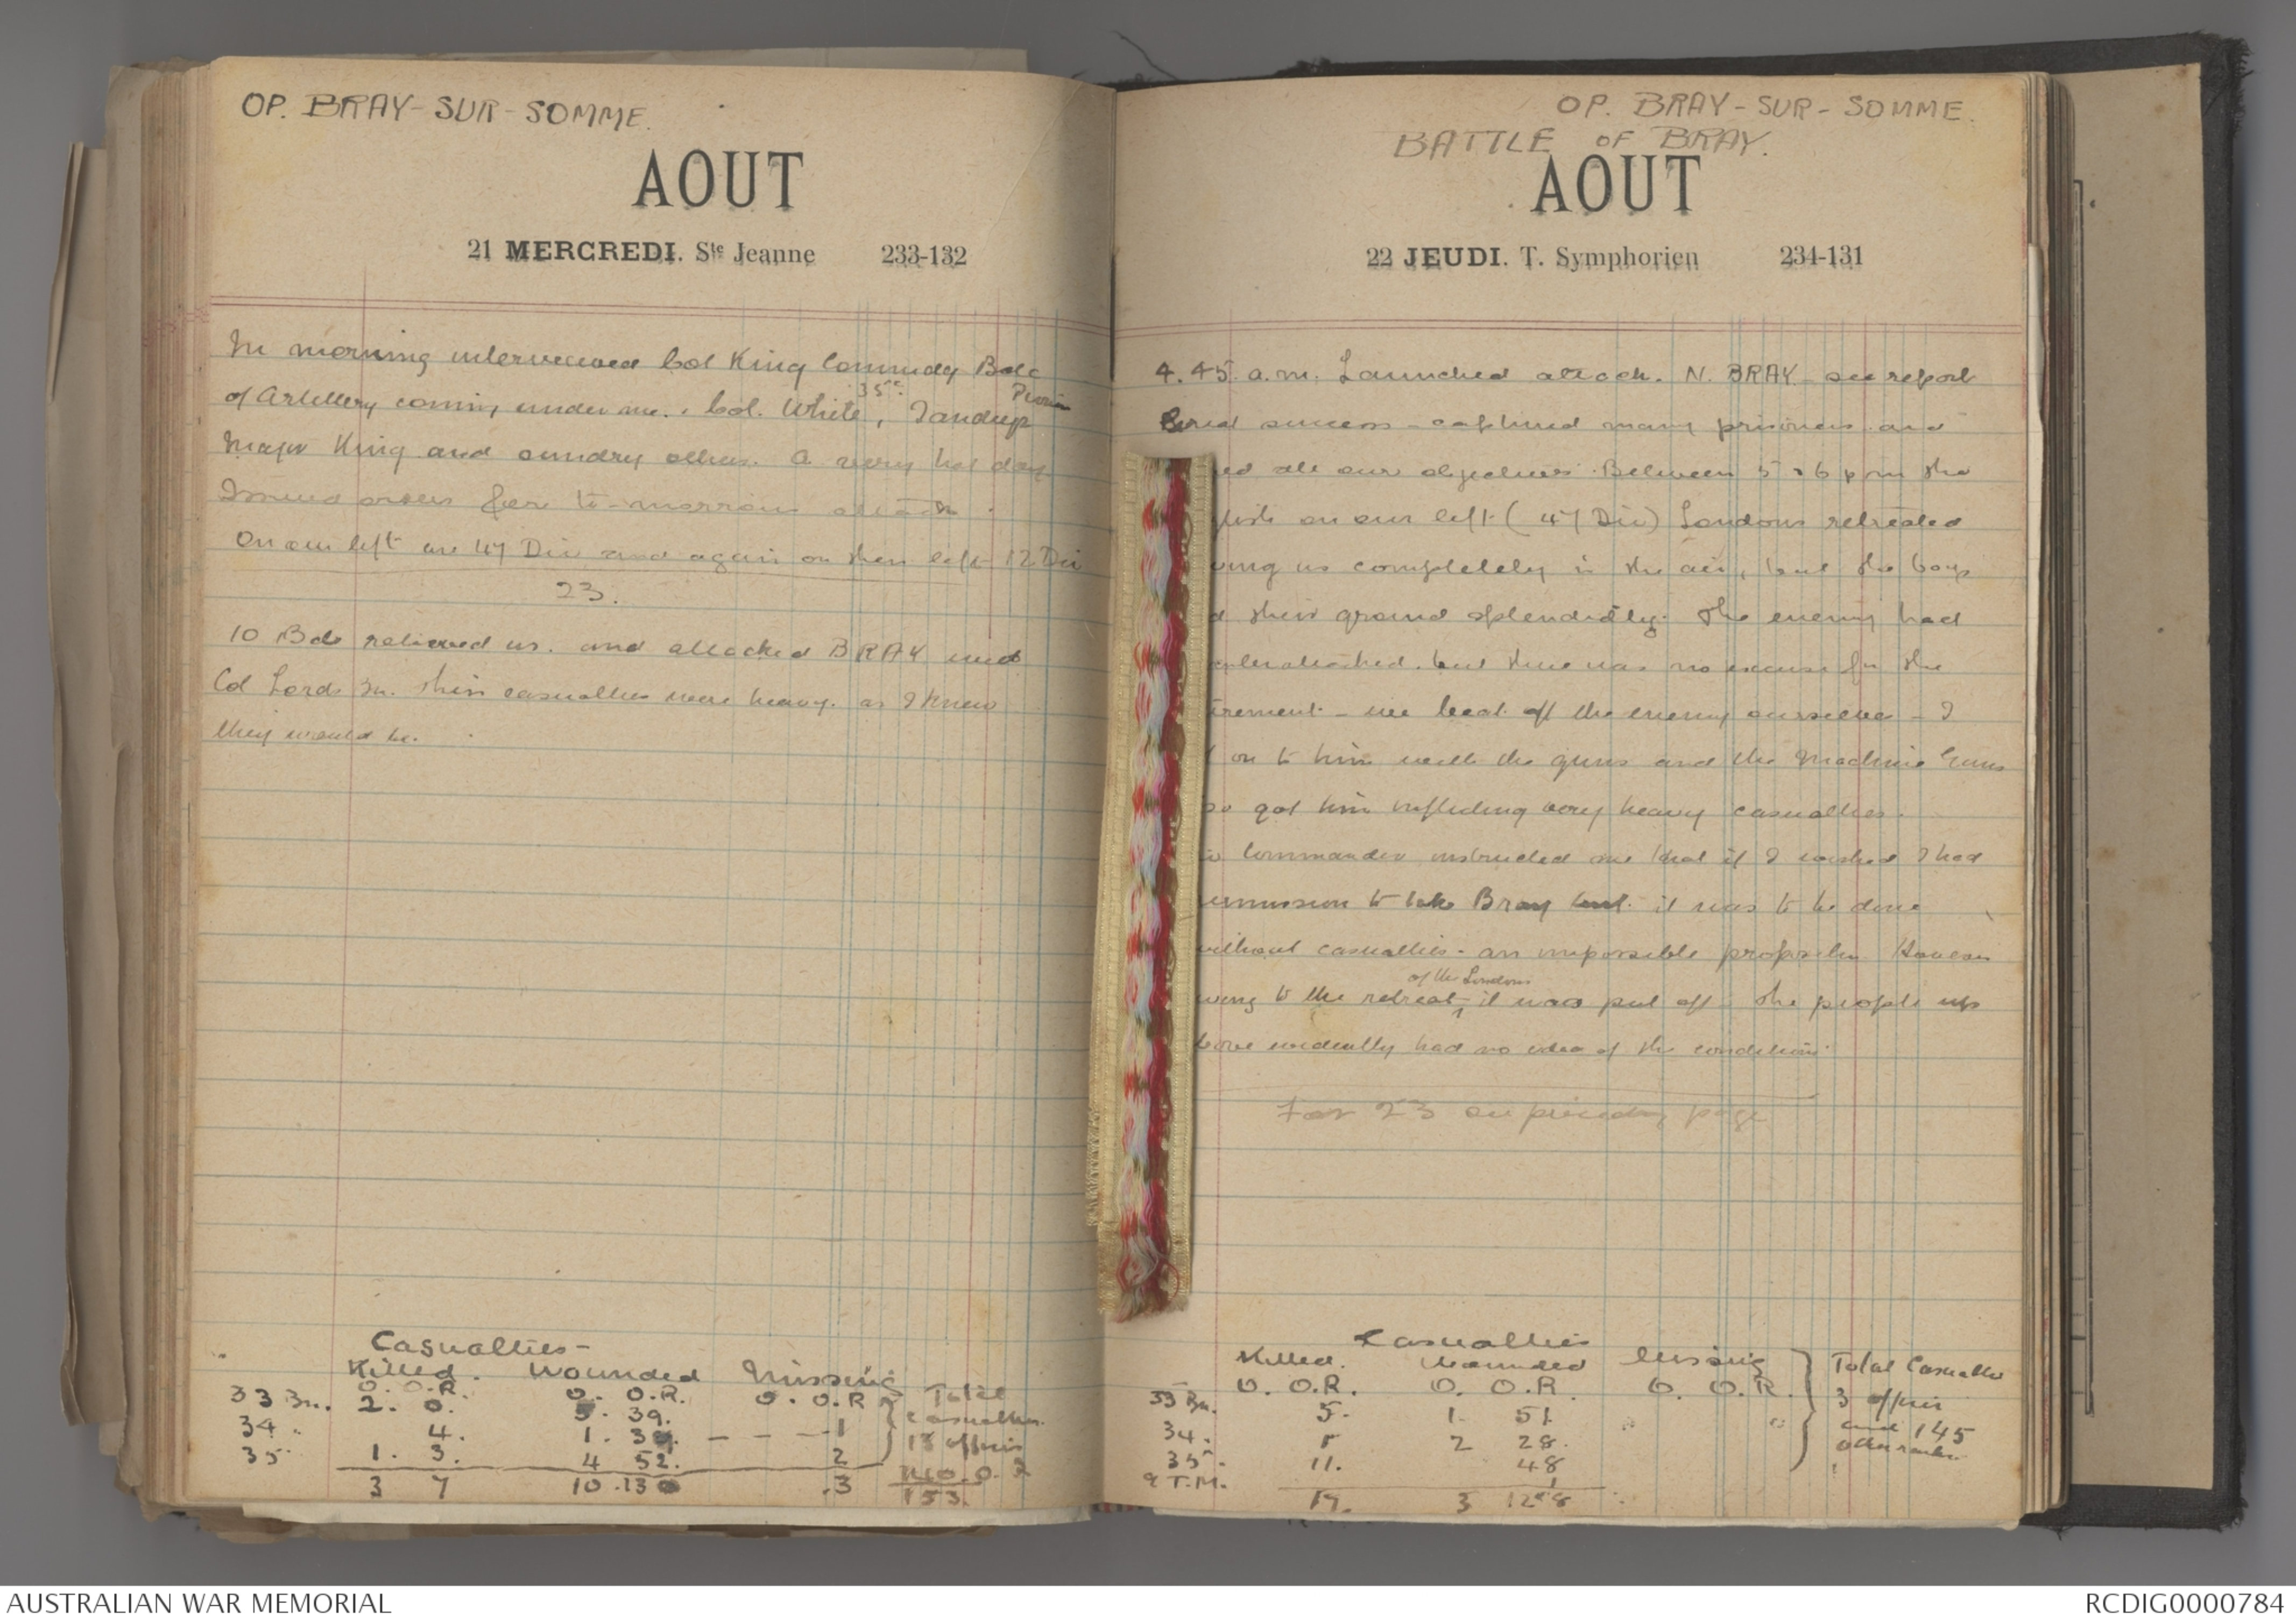 OP. BRAY-SUR-SOMME.
AOUT
21 MERCREDI. Ste Jeanne 233-132
In morning interviewed Col King Commdg Bde
of Artillery coming under me. Col. White 35th,
Major King and sundry others. A very hot day
Issued orders for to-morrows attack.
On our left are 47 Div and again on their left 12 Div
23.
10 Bde relieved us. and attacked BRAY under
Col Lord. Their casualties were heavy. as I knew
they would be.
Casualties-
Killed. Wounded Missing
O. O.R. O. O.R. O. O.R Total
33 Bn. 2. 0. 5. 39. casualties.
34. 4. 1. 39. - - - 1 13 officers
35 1. 3. 4 52. 2 140 O.R
3 7 10 .130 .3 153.
OP. BRAY-SUR-SOMME.
BATTLE OF BRAY.
AOUT
22 JEUDI. T. Symphorien 234-131
4.45. a.m. Launched attack. N. BRAY see report
Great success - captured many prisoners and
all our objectives. Between 5 & 6 pm the
on our left (47 Div) Londons retreated
us completely in the air, but the boys
their ground splendidly. The enemy had
but there was no excuse for the
- we beat off the enemy ourselves - I
on to him with the guns and the Machine Guns
got him inflicting very heavy casualties.
Commander instructed me that if I wished I had
permission to take Bray but it was to be done
without casualties - an impossible proposition However
owing to the retreat of the Londons it was put off. The people up
above evidently had no idea of the conditions.
For 23 see preceding page
Casualties
Killed. Wounded Missing Total Casualties
O. O.R. O. O.R. O. O.R. 3 officers
33 Bn. 5. 1. 51. and 145
34. 2 28. other ranks
35. 11. 48
9 T.M. 1
17. 3 128
AUSTRALIAN WAR MEMORIAL
RCDIG0000784